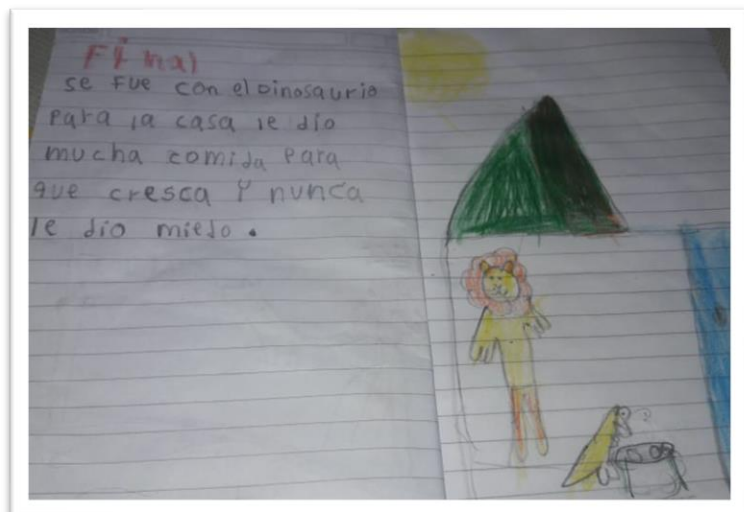 Final
se fue con el Dinosaurio
para la casa le dio
mucha comida para
que cresca y nunca
le dio miedo.